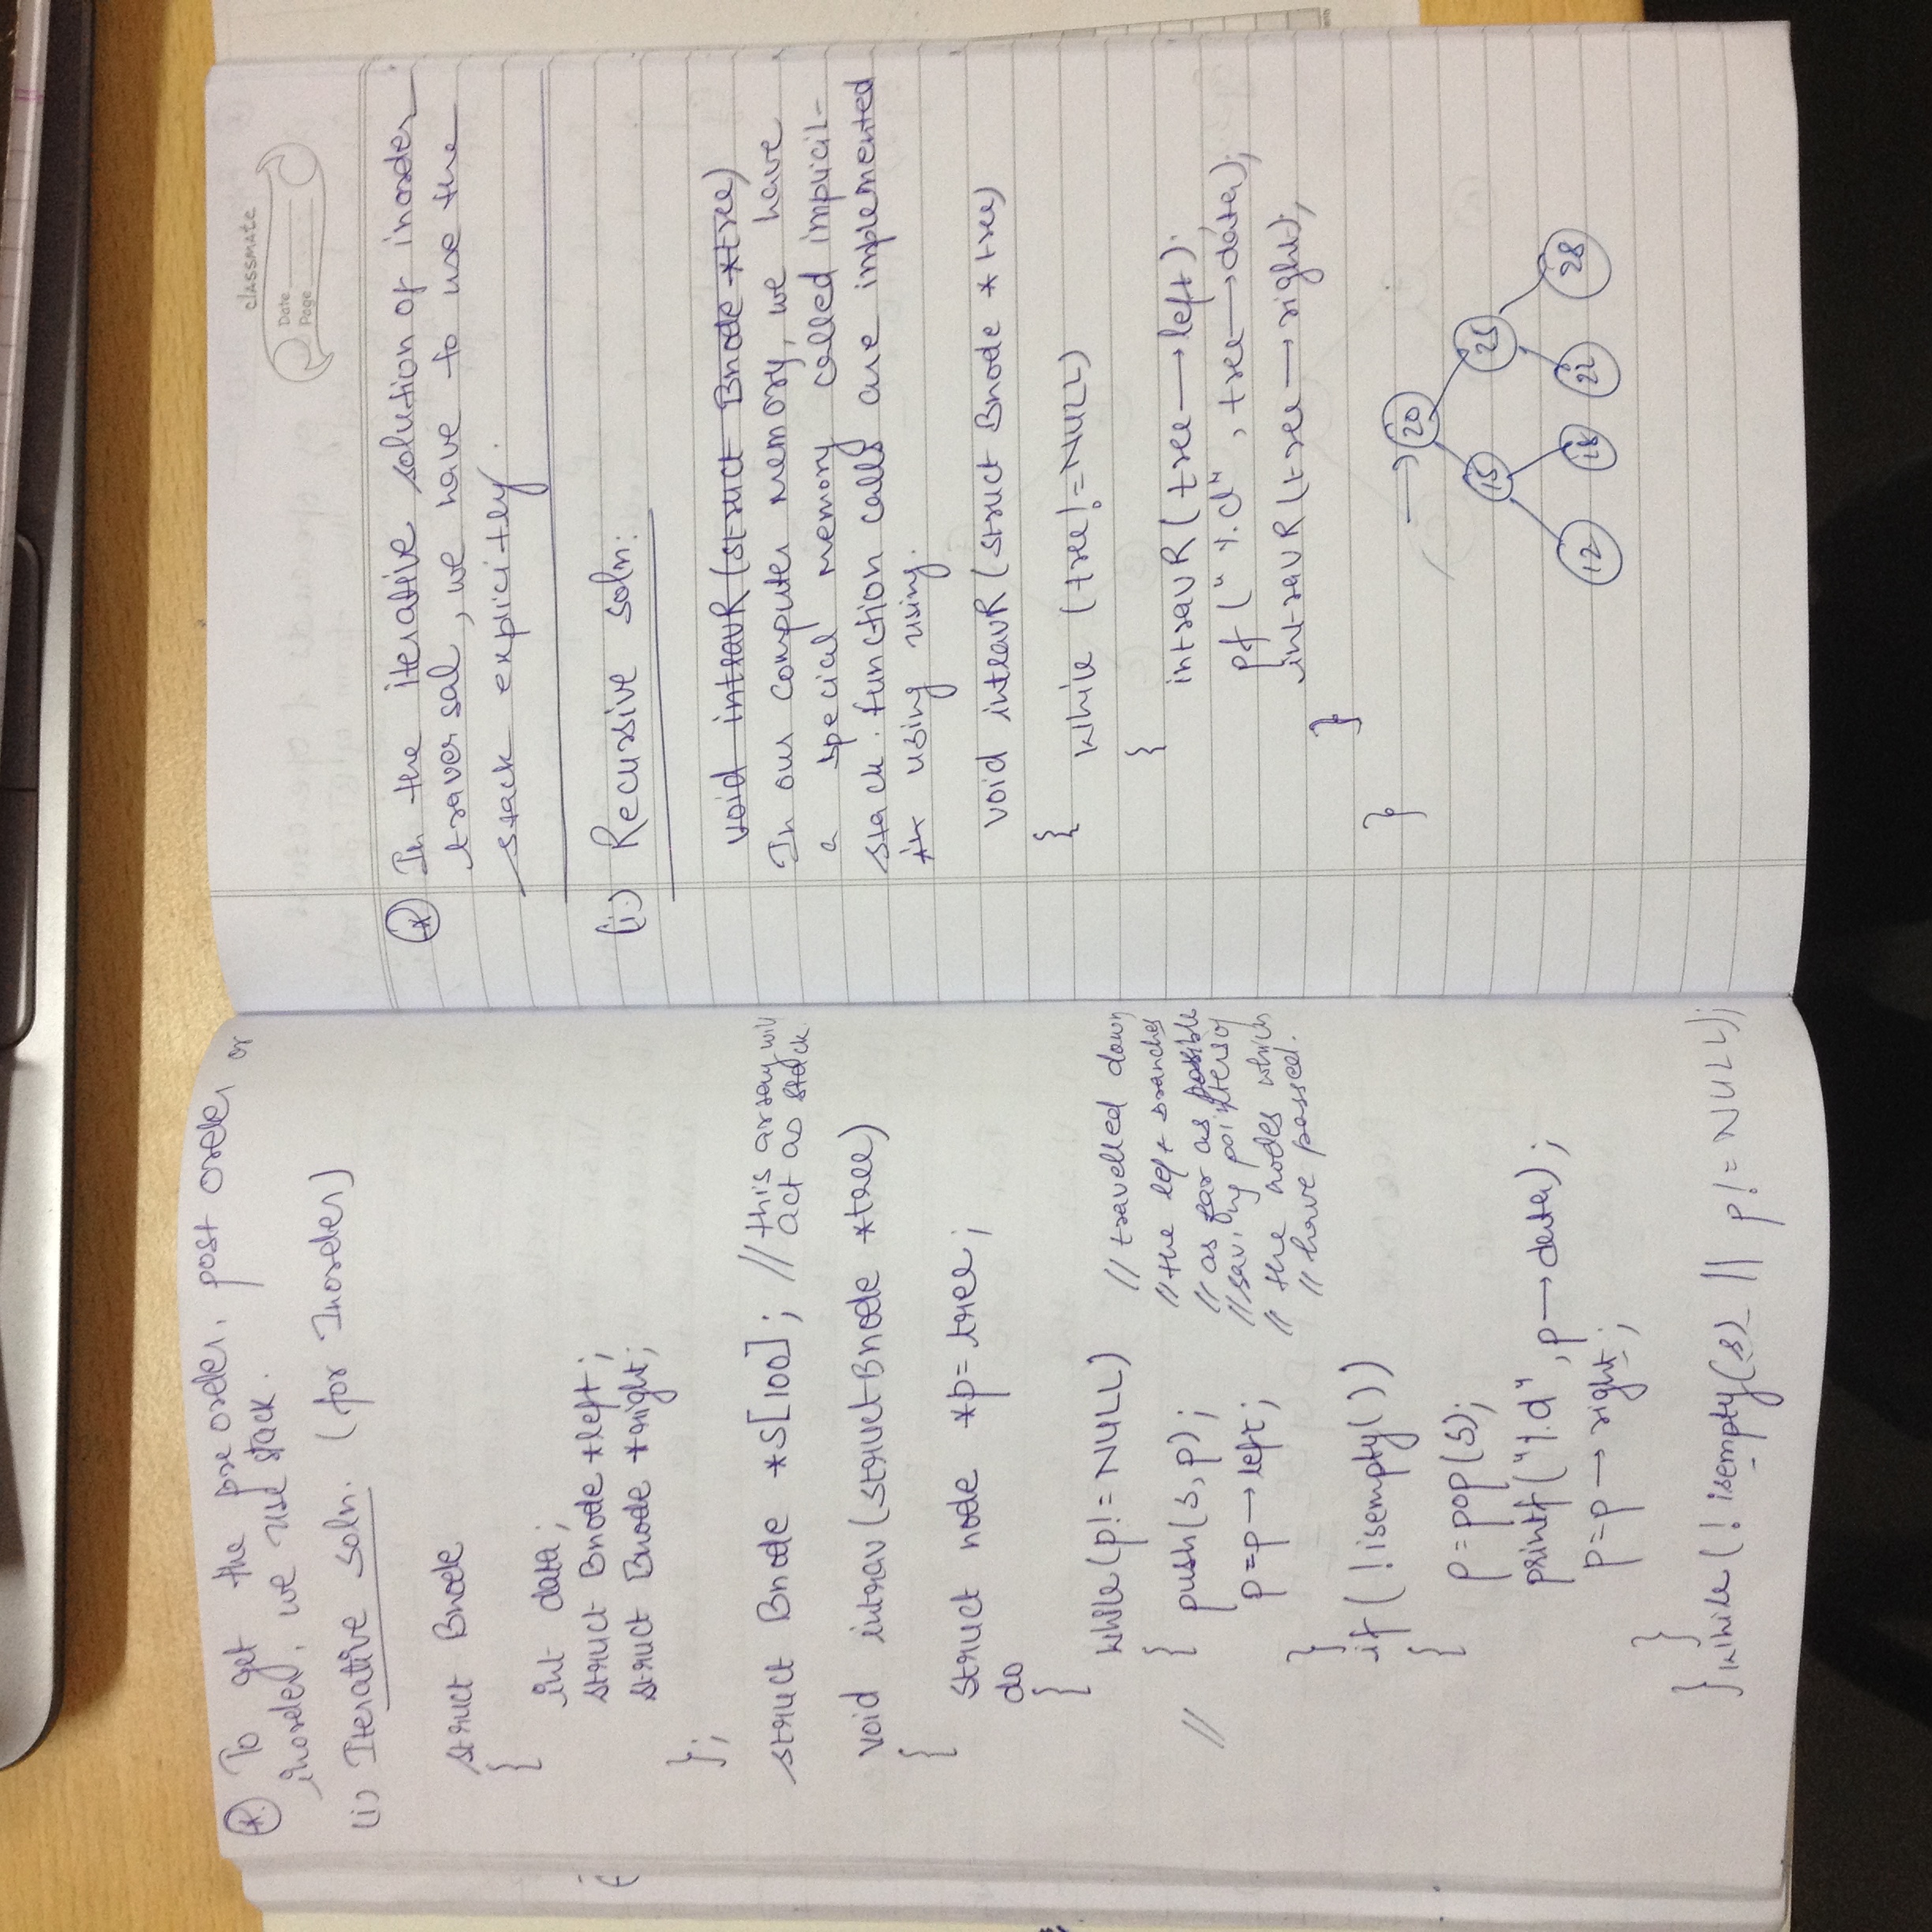 * To get the pre order, post order or
inorder, we use stack.
(i) Iterative soln. (for Inorder)
struct Bnode
{
int data;
struct Bnode *left;
struct Bnode *right;
};
struct Bnode *S[100]; //this array will
// act as stack.
void intrav(struct Bnode *tree)
{
struct node *p=tree;
do
{
while(p!=NULL) //travelled down
{ push(s,p); //the left branches
// //as far as possible
p=p→left; //saving pointers of
} // the nodes which
//have passed.
if(!isempty())
{
p=pop(s);
printf("%d", p→data);
p=p→right;
}
}while(!isempty(s) || p!=NULL);
classmate
Date
Page
* In the iterative solution of inorder
traversal, we have to use the
stack expicitly.
(i) Recursive soln:
void intravR(struct Bnode *tree)
In our computer memory, we have
a special memory called implicit-
stack. function calls are implemented
using using.
void intravR(struct Bnode *tree)
{
while (tree!=NULL)
{
intravR(tree→left);
pf("%d", tree→data);
intravR(tree→right);
}
}
20
15 25
12 18 22 28